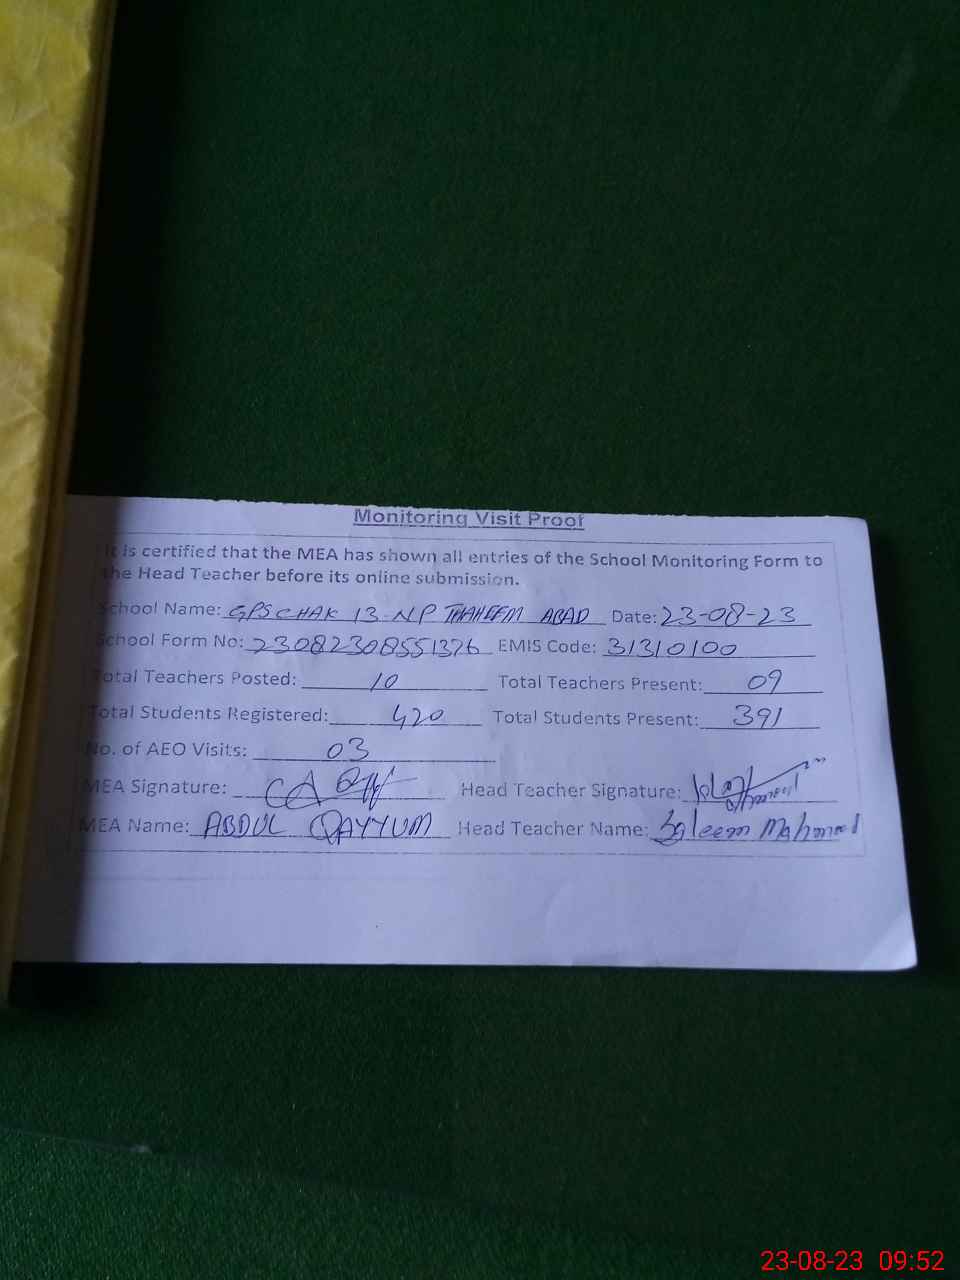 Monitoring Visit Proof
It is certified that the MEA has shown all entries of the School Monitoring Form to
the Head Teacher before its online submission.
School Name: GPS CHAK 13-NP THAHEEM ABAD Date: 23-08-23
School Form No: 23082308551326 EMIS Code: 31310100
Total Teachers Posted: 10 Total Teachers Present: 09
Total Students Registered: 420 Total Students Present: 391
No. of AEO Visits: 03
MEA Signature: Head Teacher Signature:
MEA Name: ABDUL QAYYUM Head Teacher Name: Saleem Mahmood
23-08-23 09:52